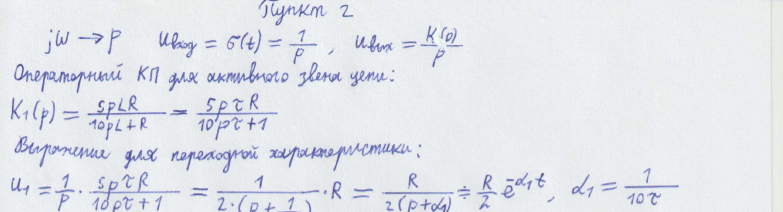 Пункт 2
jω → p   Uвход = σ(t) = 1/p , Uвых = K(p)/p
Операторный КП для активного звена цепи:
K₁(p) = 5pLR/(10pL+R) = 5pτR/(10pτ+1)
Выражение для переходной характеристики:
U₁ = 1/p · 5pτR/(10pτ+1) = 1/(2·(p+1/ · R = R/(2(p+α₁)) ≑ R/2 e^(-α₁t), α₁ = 1/(10τ)